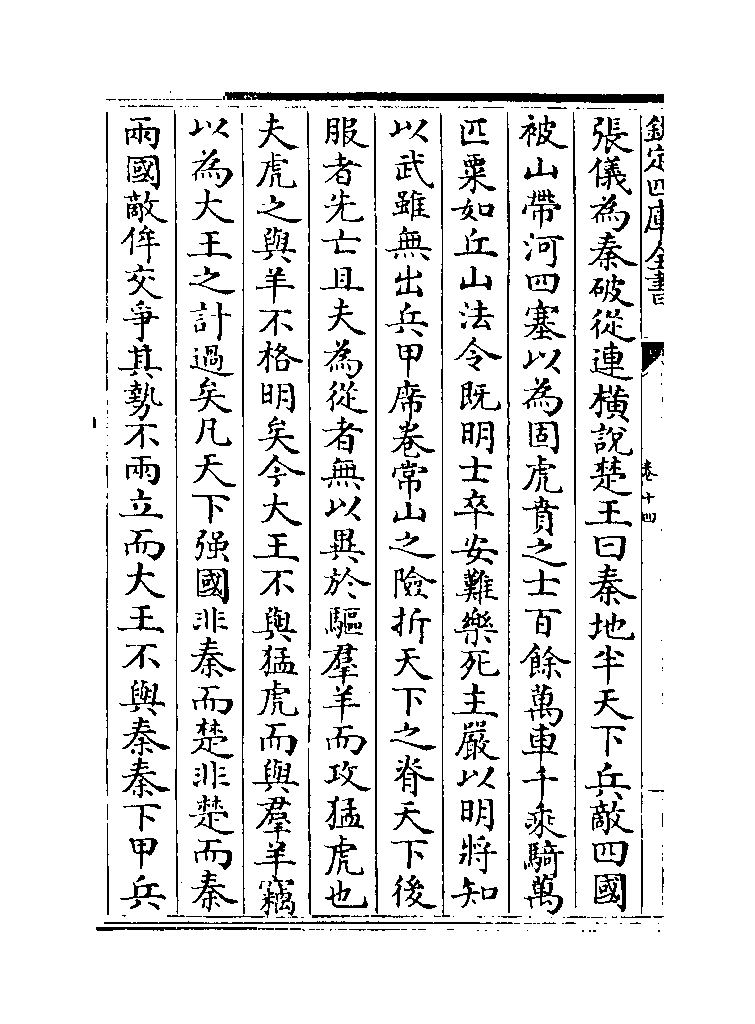 欽定四庫全書
卷十四
張儀為秦破從連橫說楚王曰秦地半天下兵敵四國
被山帶河四塞以為固虎賁之士百餘萬車千乘騎萬
匹粟如丘山法令既明士卒安難樂死主嚴以明將知
以武雖無出兵甲席卷常山之險折天下之脊天下後
服者先亡且夫為從者無以異於驅羣羊而攻猛虎也
夫虎之與羊不格明矣今大王不與猛虎而與羣羊竊
以為大王之計過矣凡天下强國非秦而楚非楚而秦
兩國敵侔交爭其勢不兩立而大王不與秦秦下甲兵